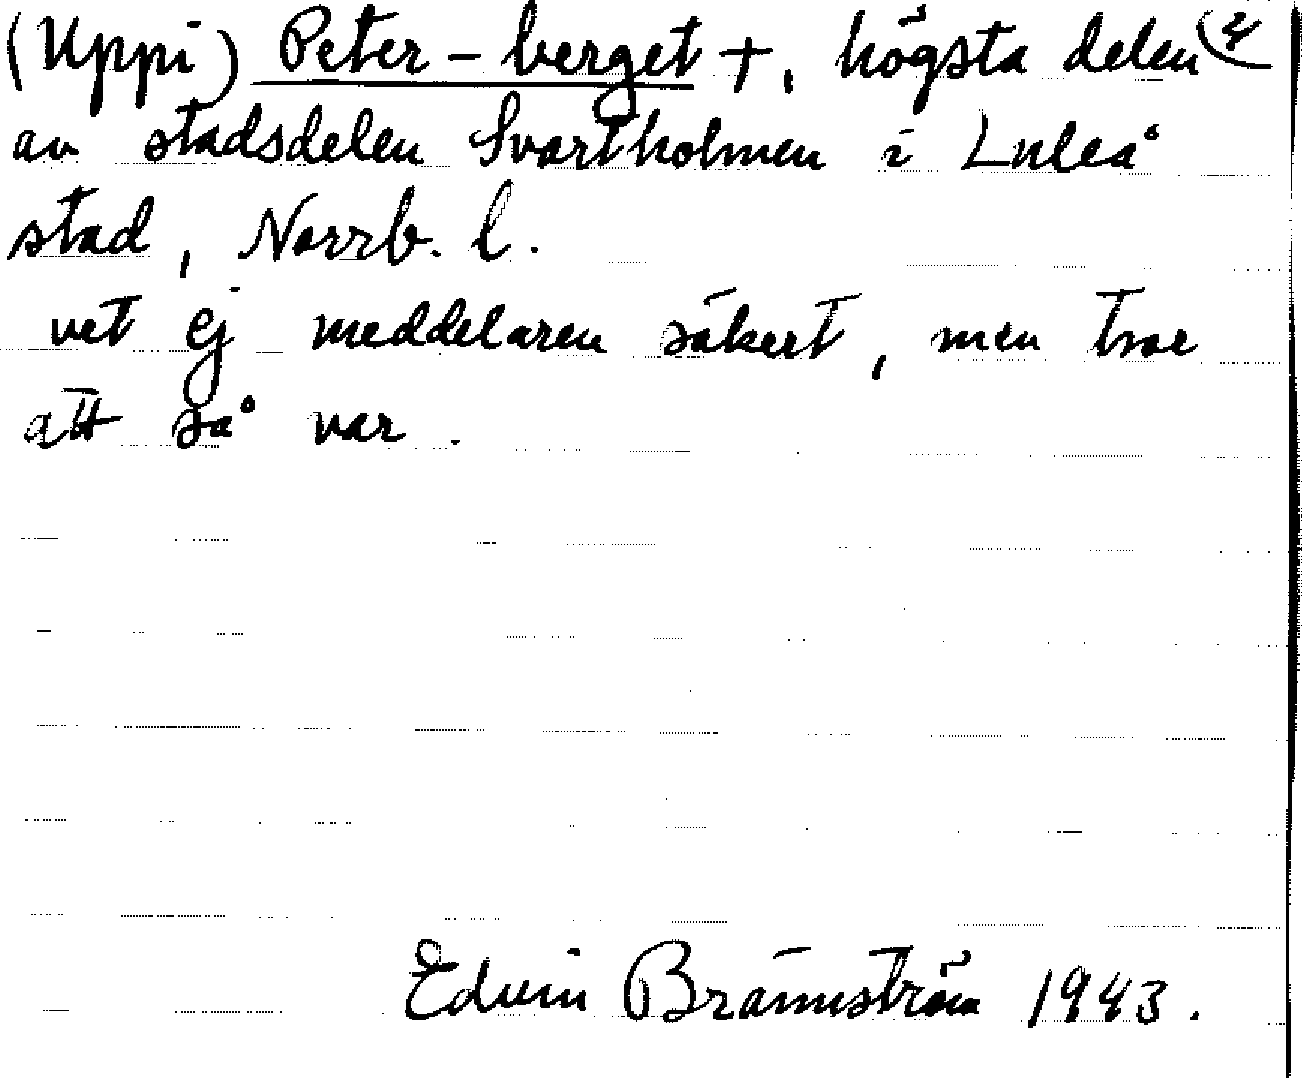 (Uppi) Peter-berget +, högsta delen (2
av stadsdelen Svartholmen i Luleå
stad, Norrb. l.
vet ej meddelaren säkert, men tror
att så var.
Edvin Brännström 1943.